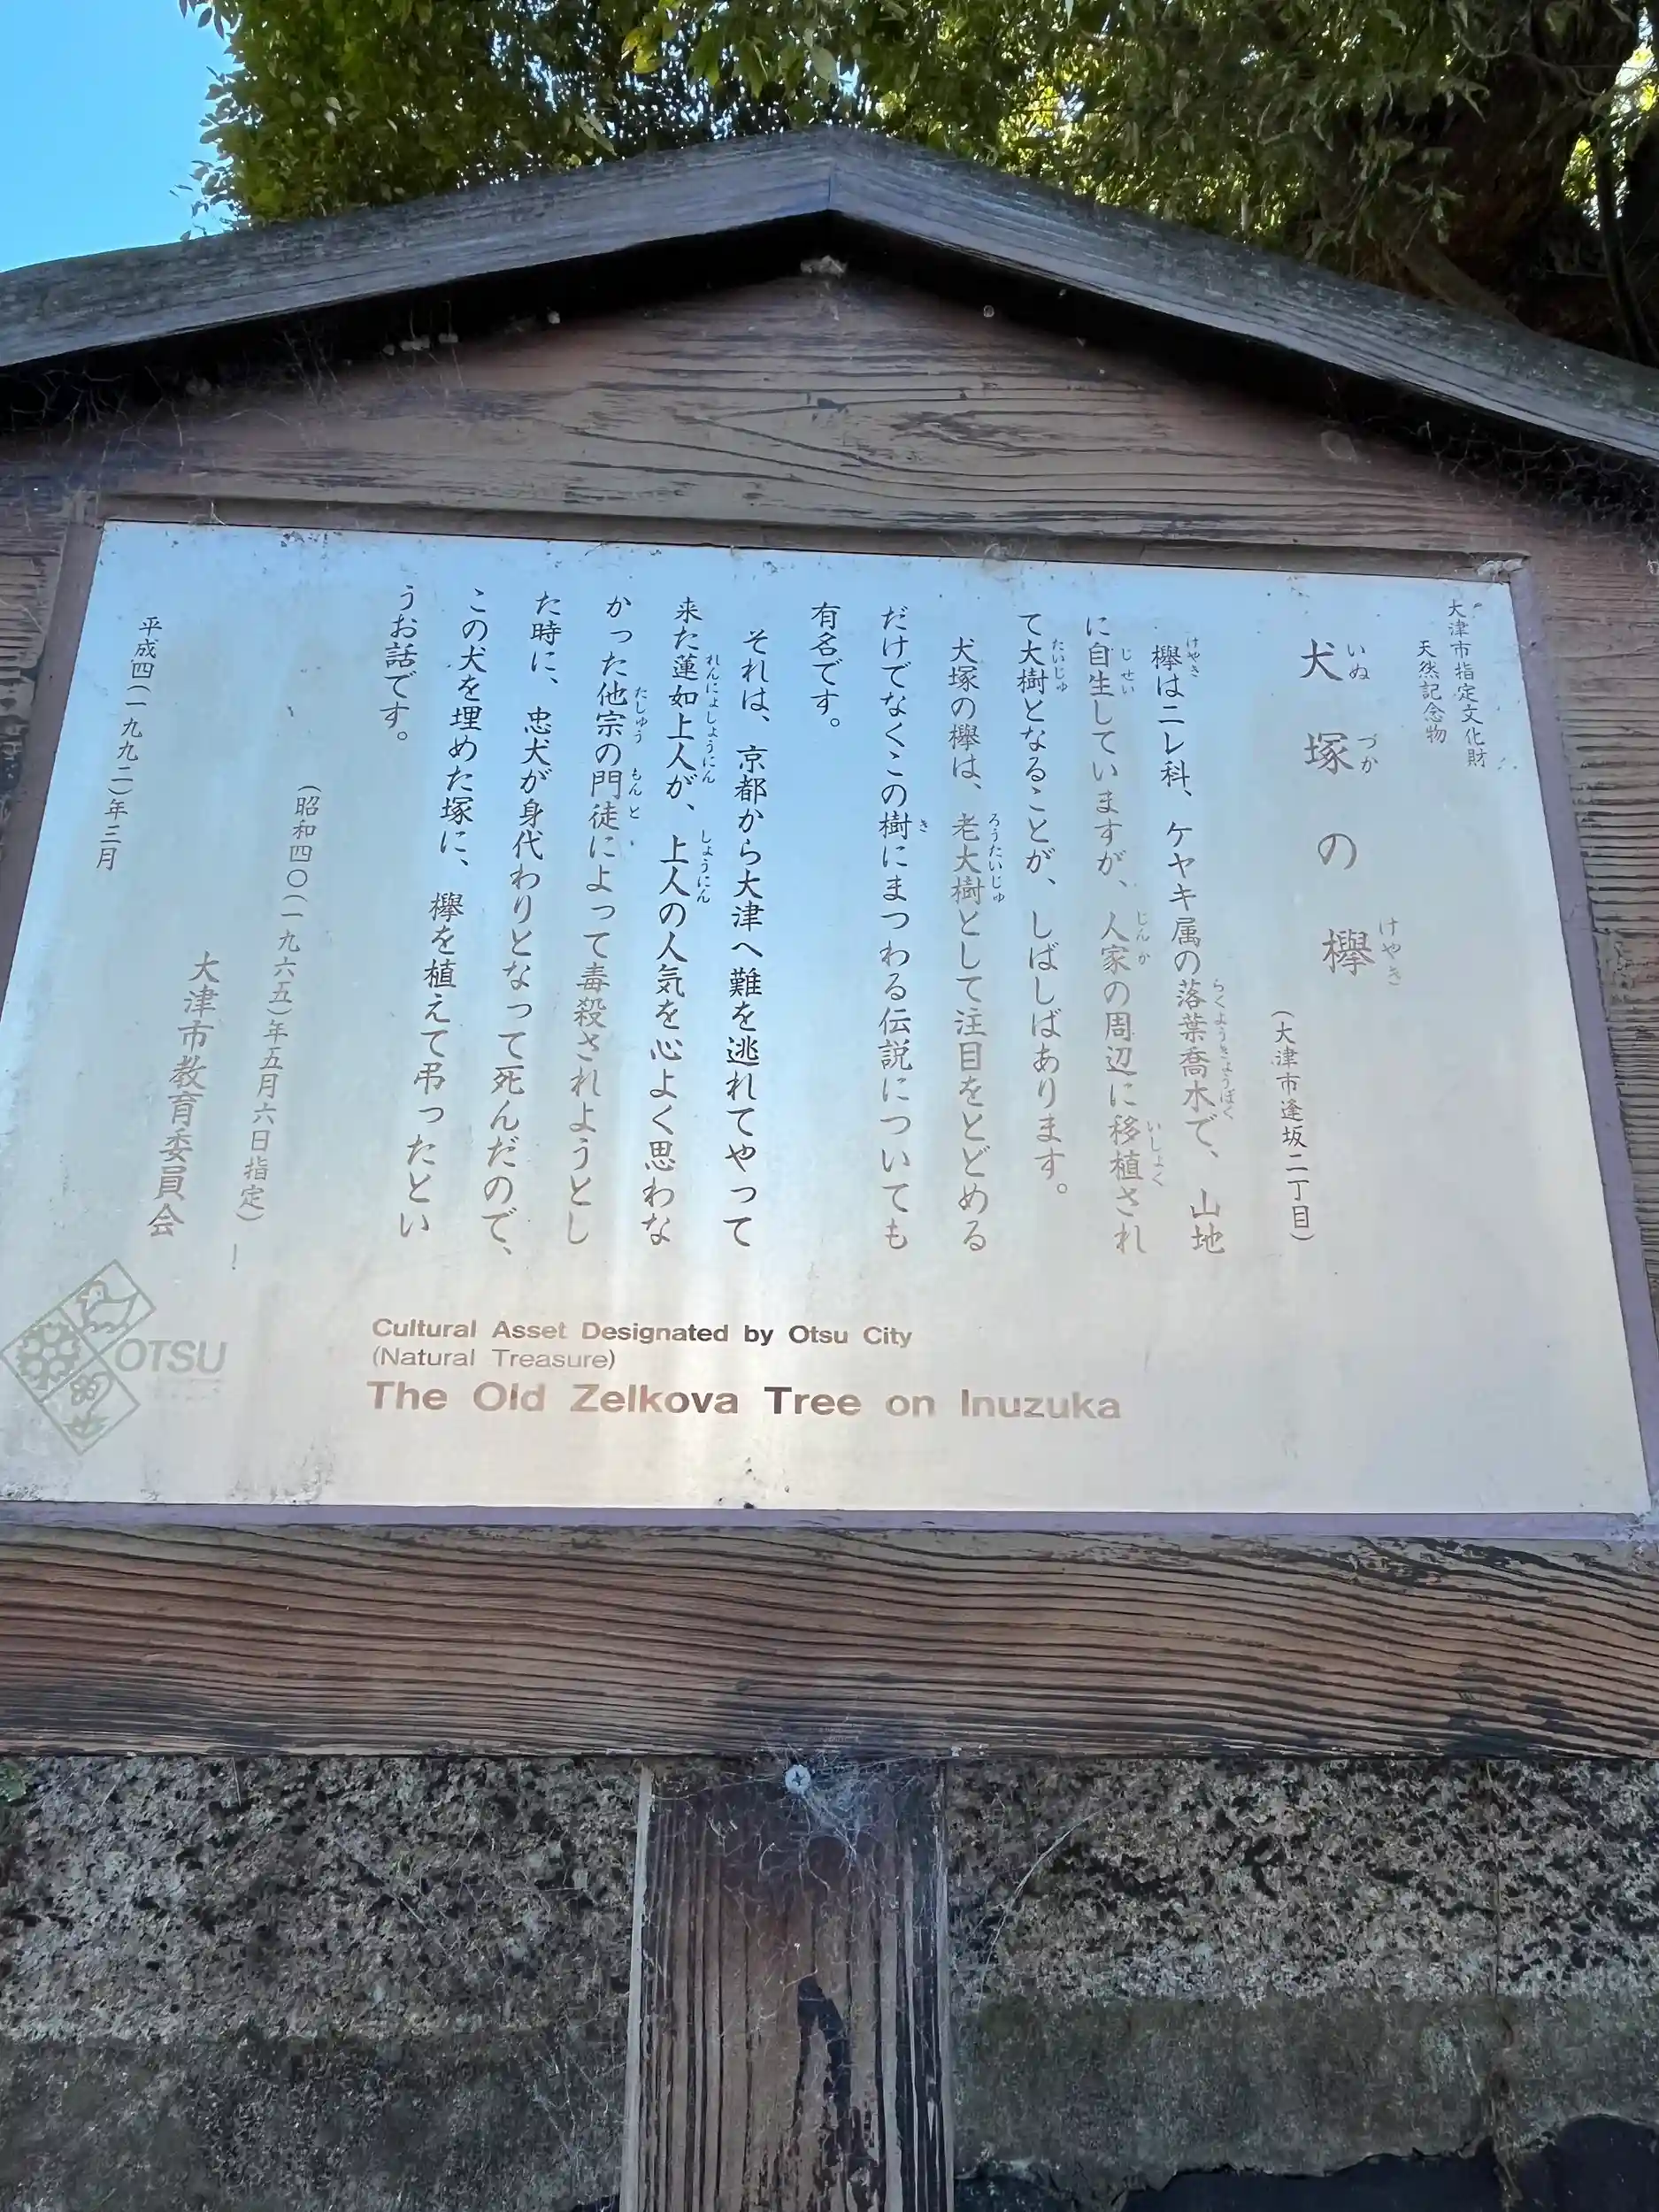 大津市指定文化財
天然記念物
犬塚の欅
いぬづかけやき
(大津市逢坂二丁目)
欅はニレ科、ケヤキ属の落葉喬木で、山地
けやき らくようきょうぼく
に自生していますが、人家の周辺に移植され
じせい じんか いしょく
て大樹となることが、しばしばあります。
たいじゅ
犬塚の欅は、老大樹として注目をとどめる
ろうたいじゅ
だけでなくこの樹にまつわる伝説についても
き
有名です。
それは、京都から大津へ難を逃れてやって
来た蓮如上人が、上人の人気を心よく思わな
れんにょしょうにん しょうにん
かった他宗の門徒によって毒殺されようとし
たしゅう もんと
た時に、忠犬が身代わりとなって死んだので、
この犬を埋めた塚に、欅を植えて弔ったとい
うお話です。
(昭和四〇(一九六五)年五月六日指定)
大津市教育委員会
平成四(一九九二)年三月
Cultural Asset Designated by Otsu City
(Natural Treasure)
The Old Zelkova Tree on Inuzuka
OTSU